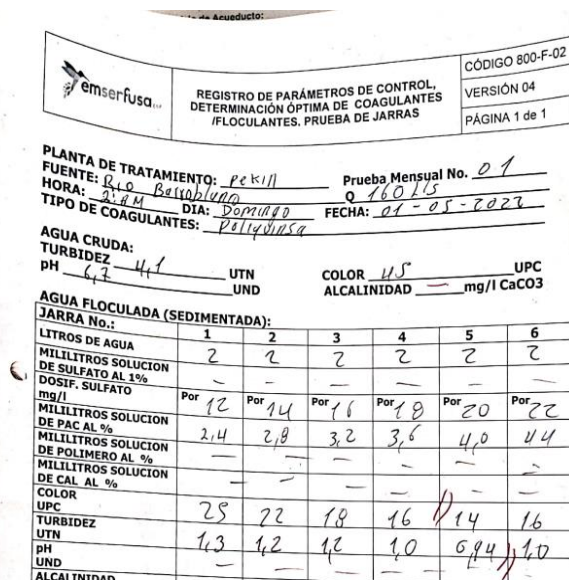 de Acueducto:
emserfusa
REGISTRO DE PARÁMETROS DE CONTROL,
DETERMINACIÓN ÓPTIMA DE COAGULANTES
/FLOCULANTES. PRUEBA DE JARRAS
CÓDIGO 800-F-02
VERSIÓN 04
PÁGINA 1 de 1
PLANTA DE TRATAMIENTO: Pekin Prueba Mensual No. 01
FUENTE: Rio Q 160 L/s
HORA: 2:AM DIA: Domingo FECHA: 01-05-2022
TIPO DE COAGULANTES: Poliquinsa
AGUA CRUDA:
TURBIDEZ 4,1 UTN COLOR 45 UPC
pH 6,7 UND ALCALINIDAD — mg/l CaCO3
AGUA FLOCULADA (SEDIMENTADA):
JARRA No.: 1 2 3 4 5 6
LITROS DE AGUA 2 2 2 2 2 2
MILILITROS SOLUCION
DE SULFATO AL 1% — — — — — —
DOSIF. SULFATO
mg/l Por 12 Por 14 Por 16 Por 18 Por 20 Por 22
MILILITROS SOLUCION
DE PAC AL % 2,4 2,8 3,2 3,6 4,0 4,4
MILILITROS SOLUCION
DE POLIMERO AL % — — — — — —
MILILITROS SOLUCION
DE CAL AL % — — — — — —
COLOR
UPC 25 22 18 16 14 16
TURBIDEZ
UTN 1,3 1,2 1,2 1,0 0,94 1,0
pH
UND — — — — —
ALCALINIDAD